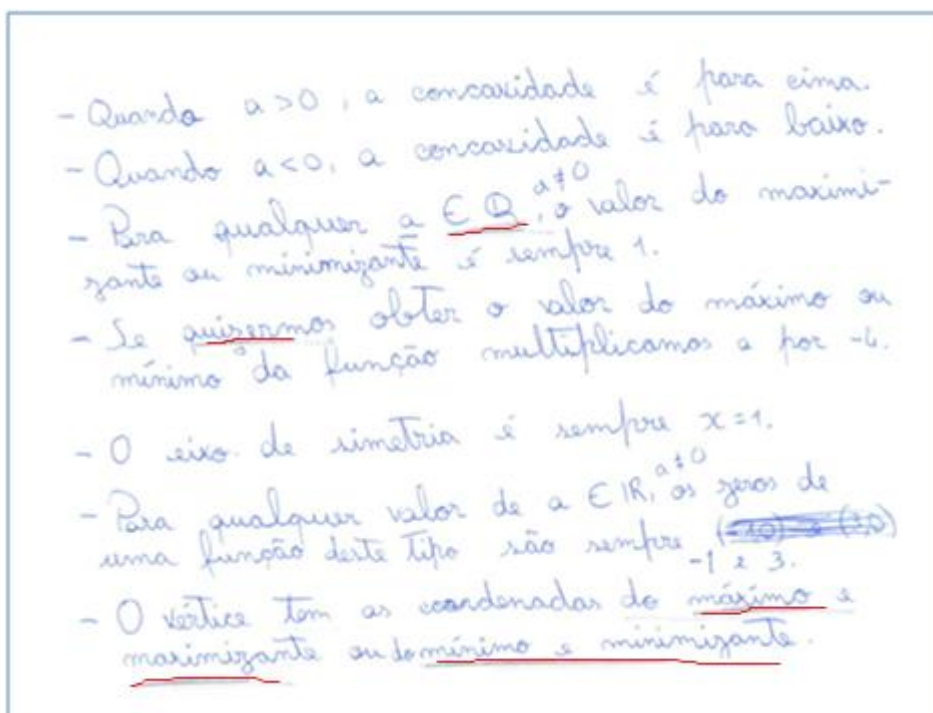 - Quando a > 0, a concavidade é para cima.
- Quando a < 0, a concavidade é para baixo.
- Para qualquer a ∈ Q, a ≠ 0 o valor do maximi-
zante ou minimizante é sempre 1.
- Se quizermos obter o valor do máximo ou
mínimo da função multiplicamos a por -4.
- O eixo de simetria é sempre x = 1.
- Para qualquer valor de a ∈ IR, a ≠ 0 os zeros de
uma função deste tipo são sempre
-1 e 3.
- O vértice tem as coordenadas do máximo e
maximizante ou do mínimo e minimizante.